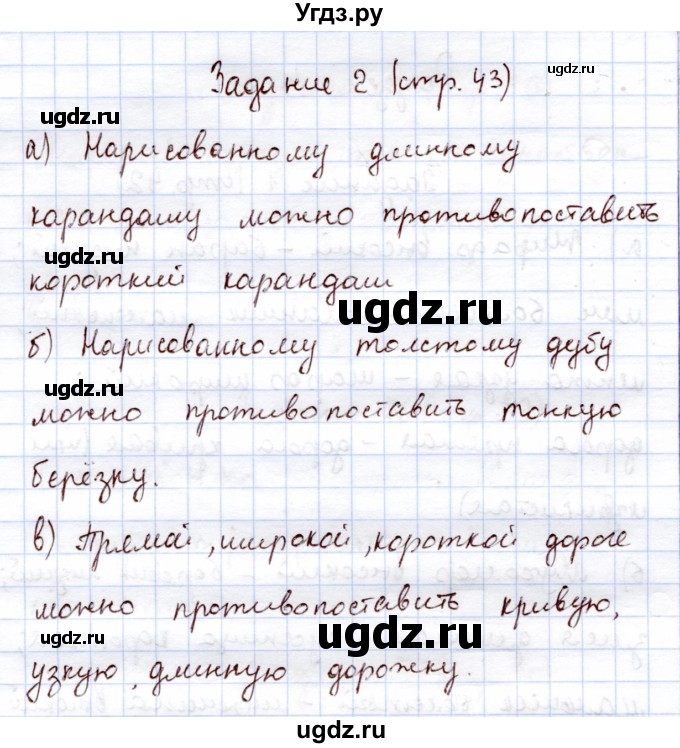 Угдз.ру
Задание 2 (стр. 43)
ugdz.ru
ugdz.ru
а) Нарисованному длинному
карандашу можно противопоставить
ugdz.ru
короткий карандаш
ugdz.ru
б) Нарисованному толстому дубу
ugdz.ru
можно противопоставить тонкую
берёзку.
в) Прямой, широкой, короткой дороге
можно противопоставить кривую,
ugdz.ru
узкую, длинную дорожку.
ugdz.ru